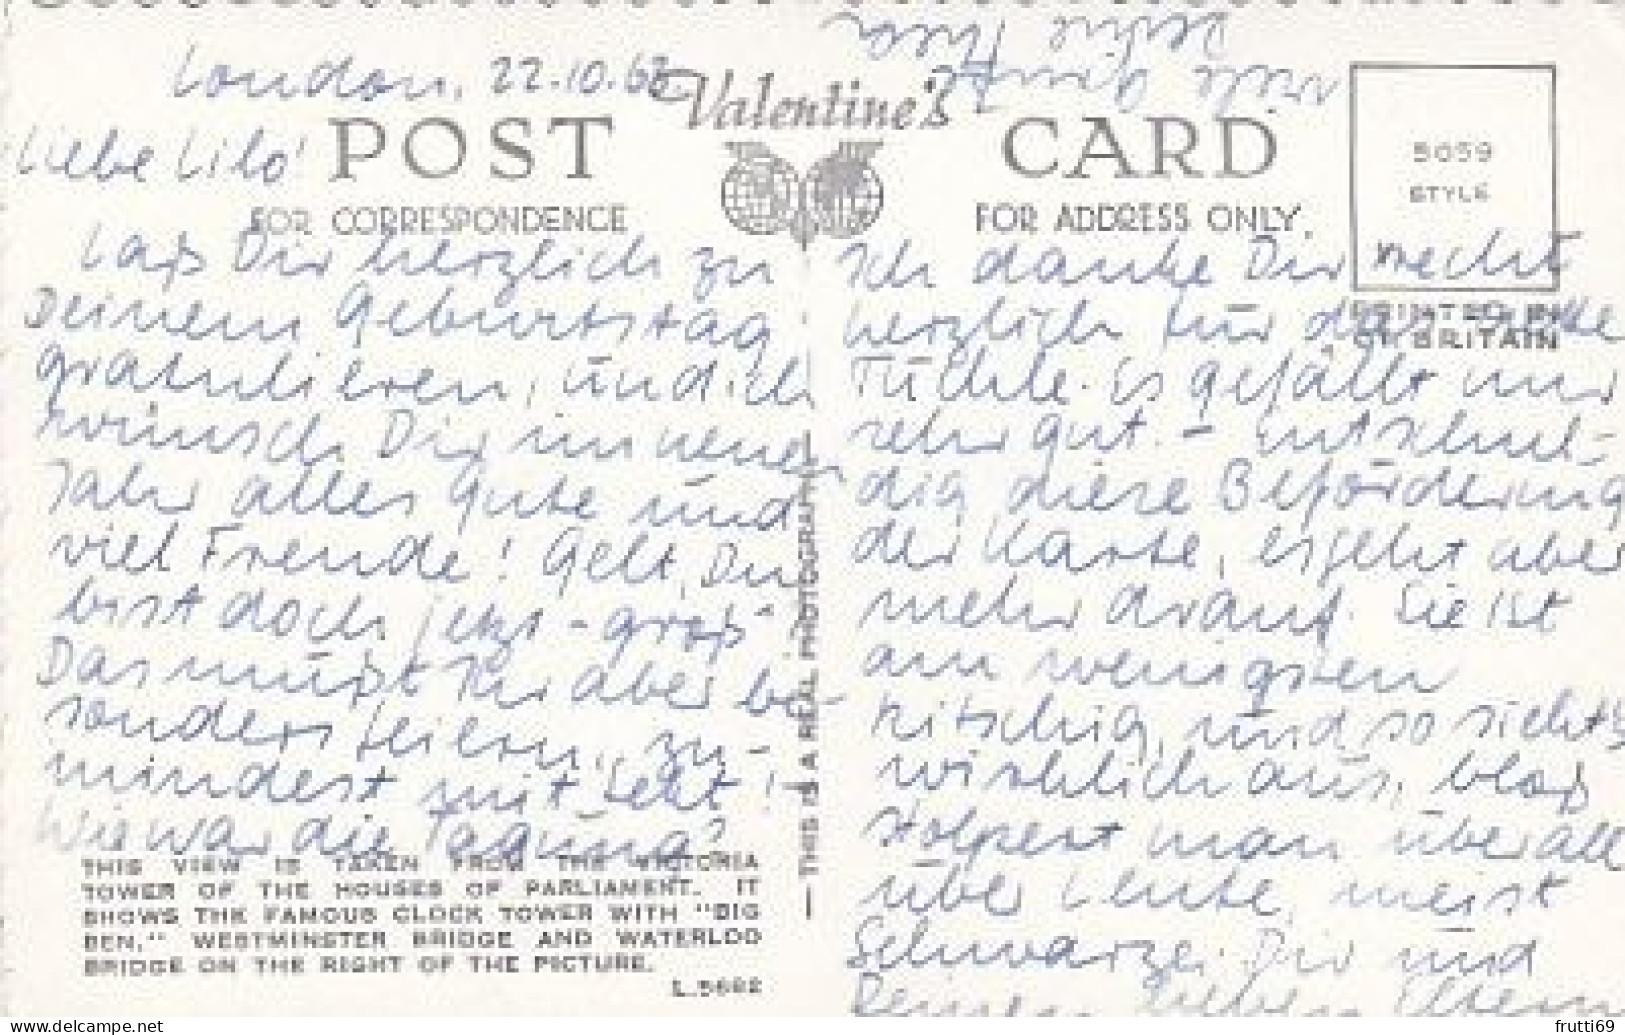 London, 22.10.63
Valentine's
POST CARD
Liebe Lilo!
FOR CORRESPONDENCE
FOR ADDRESS ONLY.
5059
STYLE
PRINTED IN
GT. BRITAIN
Laß Dir herzlich zu
Deinem Geburtstag
gratulieren, und ich
wünsch Dir im neuen
Jahr alles Gute und
viel Freude! Gelt, Du
bist doch jetzt - groß -
Das müßt Ihr aber be-
sonders feiern, zu-
mindest mit Sekt!
Wie war die Tagung?
Ich danke Dir recht
herzlich für das nette
Tüchle. Es gefällt mir
sehr gut. - Entschul-
dig diese Beförderung
der Karte, es geht aber
mehr drauf. Sie ist
am wenigsten
kitschig, und so sieht's
wirklich aus, bloß
stolpert man überall
über Leute, meist
Schwarze. Dir und
Deinen lieben Eltern
viele Grüße
Deine
THIS VIEW IS TAKEN FROM THE VICTORIA
TOWER OF THE HOUSES OF PARLIAMENT. IT
SHOWS THE FAMOUS CLOCK TOWER WITH "BIG
BEN," WESTMINSTER BRIDGE AND WATERLOO
BRIDGE ON THE RIGHT OF THE PICTURE.
L.5682
— THIS IS A REAL PHOTOGRAPH
delcampe.net
frutti69